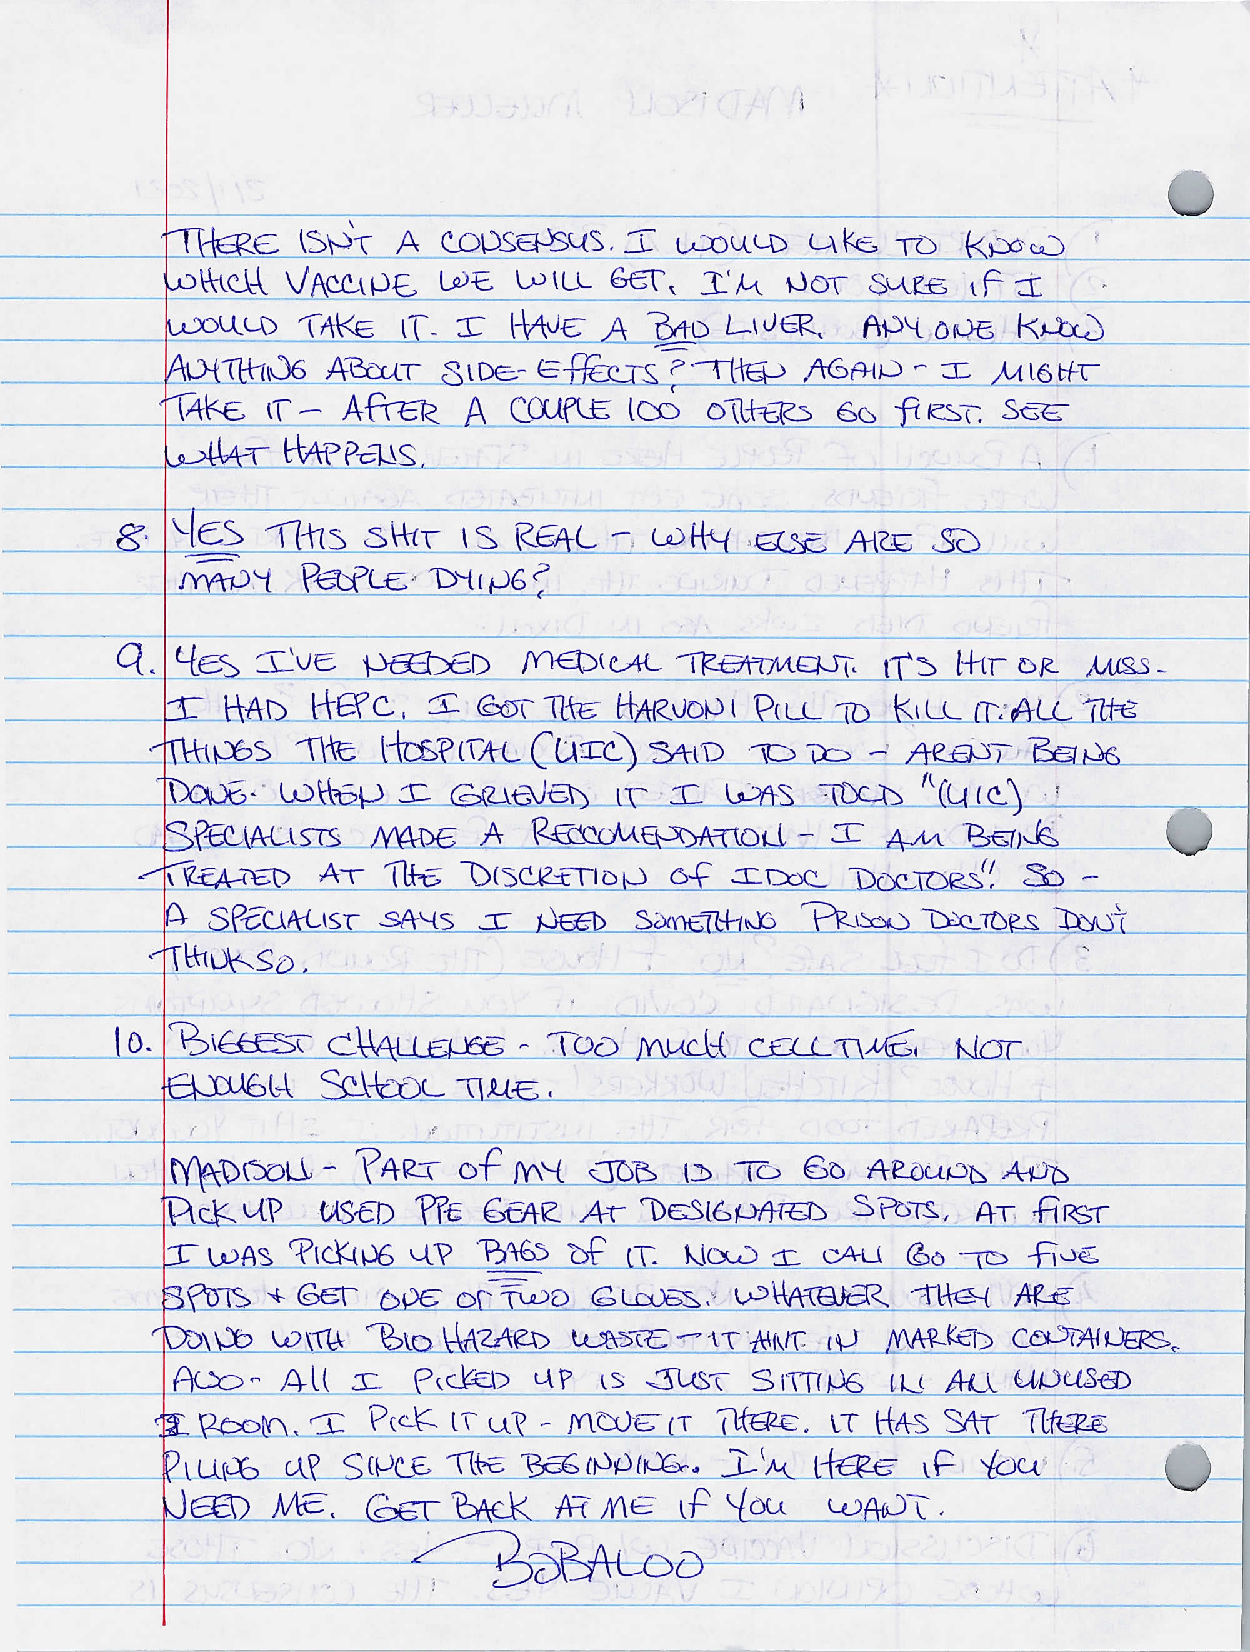 THERE ISN'T A CONSENSUS. I WOULD LIKE TO KNOW
WHICH VACCINE WE WILL GET. I'M NOT SURE IF I
WOULD TAKE IT. I HAVE A BAD LIVER. ANYONE KNOW
ANYTHING ABOUT SIDE-EFFECTS? THEN AGAIN - I MIGHT
TAKE IT - AFTER A COUPLE 100 OTHERS GO FIRST. SEE
WHAT HAPPENS.
8. YES THIS SHIT IS REAL - WHY ELSE ARE SO
MANY PEOPLE DYING?
9. YES I'VE NEEDED MEDICAL TREATMENT. IT'S HIT OR MISS.
I HAD HEPC. I GOT THE HARVONI PILL TO KILL IT. ALL THE
THINGS THE HOSPITAL (UIC) SAID TO DO - ARENT BEING
DONE. WHEN I GRIEVED IT I WAS TOLD "(UIC)
SPECIALISTS MADE A RECCOMENDATION - I AM BEING
TREATED AT THE DISCRETION OF IDOC DOCTORS". SO -
A SPECIALIST SAYS I NEED SOMETHING PRISON DOCTORS DON'T
THINK SO.
10. BIGGEST CHALLENGE - TOO MUCH CELL TIME. NOT
ENOUGH SCHOOL TIME.
MADISON - PART OF MY JOB IS TO GO AROUND AND
PICK UP USED PPE GEAR AT DESIGNATED SPOTS. AT FIRST
I WAS PICKING UP BAGS OF IT. NOW I CAN GO TO FIVE
SPOTS + GET ONE OR TWO GLOVES. WHATEVER THEY ARE
DOING WITH BIO HAZARD WASTE - IT AINT IN MARKED CONTAINERS.
ALSO - ALL I PICKED UP IS JUST SITTING IN AN UNUSED
ROOM. I PICK IT UP - MOVE IT THERE. IT HAS SAT THERE
PILING UP SINCE THE BEGINNING. I'M HERE IF YOU
NEED ME. GET BACK AT ME IF YOU WANT.
BOBALOO